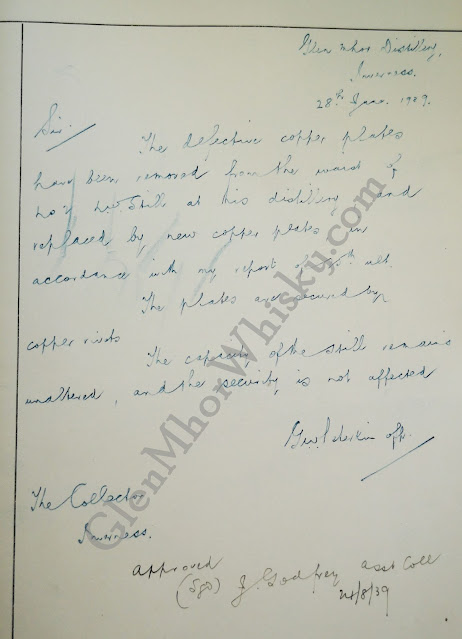 Glen Mhor Distillery,
Inverness.
28th June 1939.
Sir.
The defective copper plates
have been removed from the waist of
No 1 L.W. Still at this distillery and
replaced by new copper plates in
accordance with my report of ult.
The plates are secured by
copper rivets
The capacity of the still remains
unaltered, and the security is not affected
off.
The Collector
Inverness.
Approved
(Sgd) J. Godfrey Asst Coll
24/8/39
GlenMhorWhisky.com